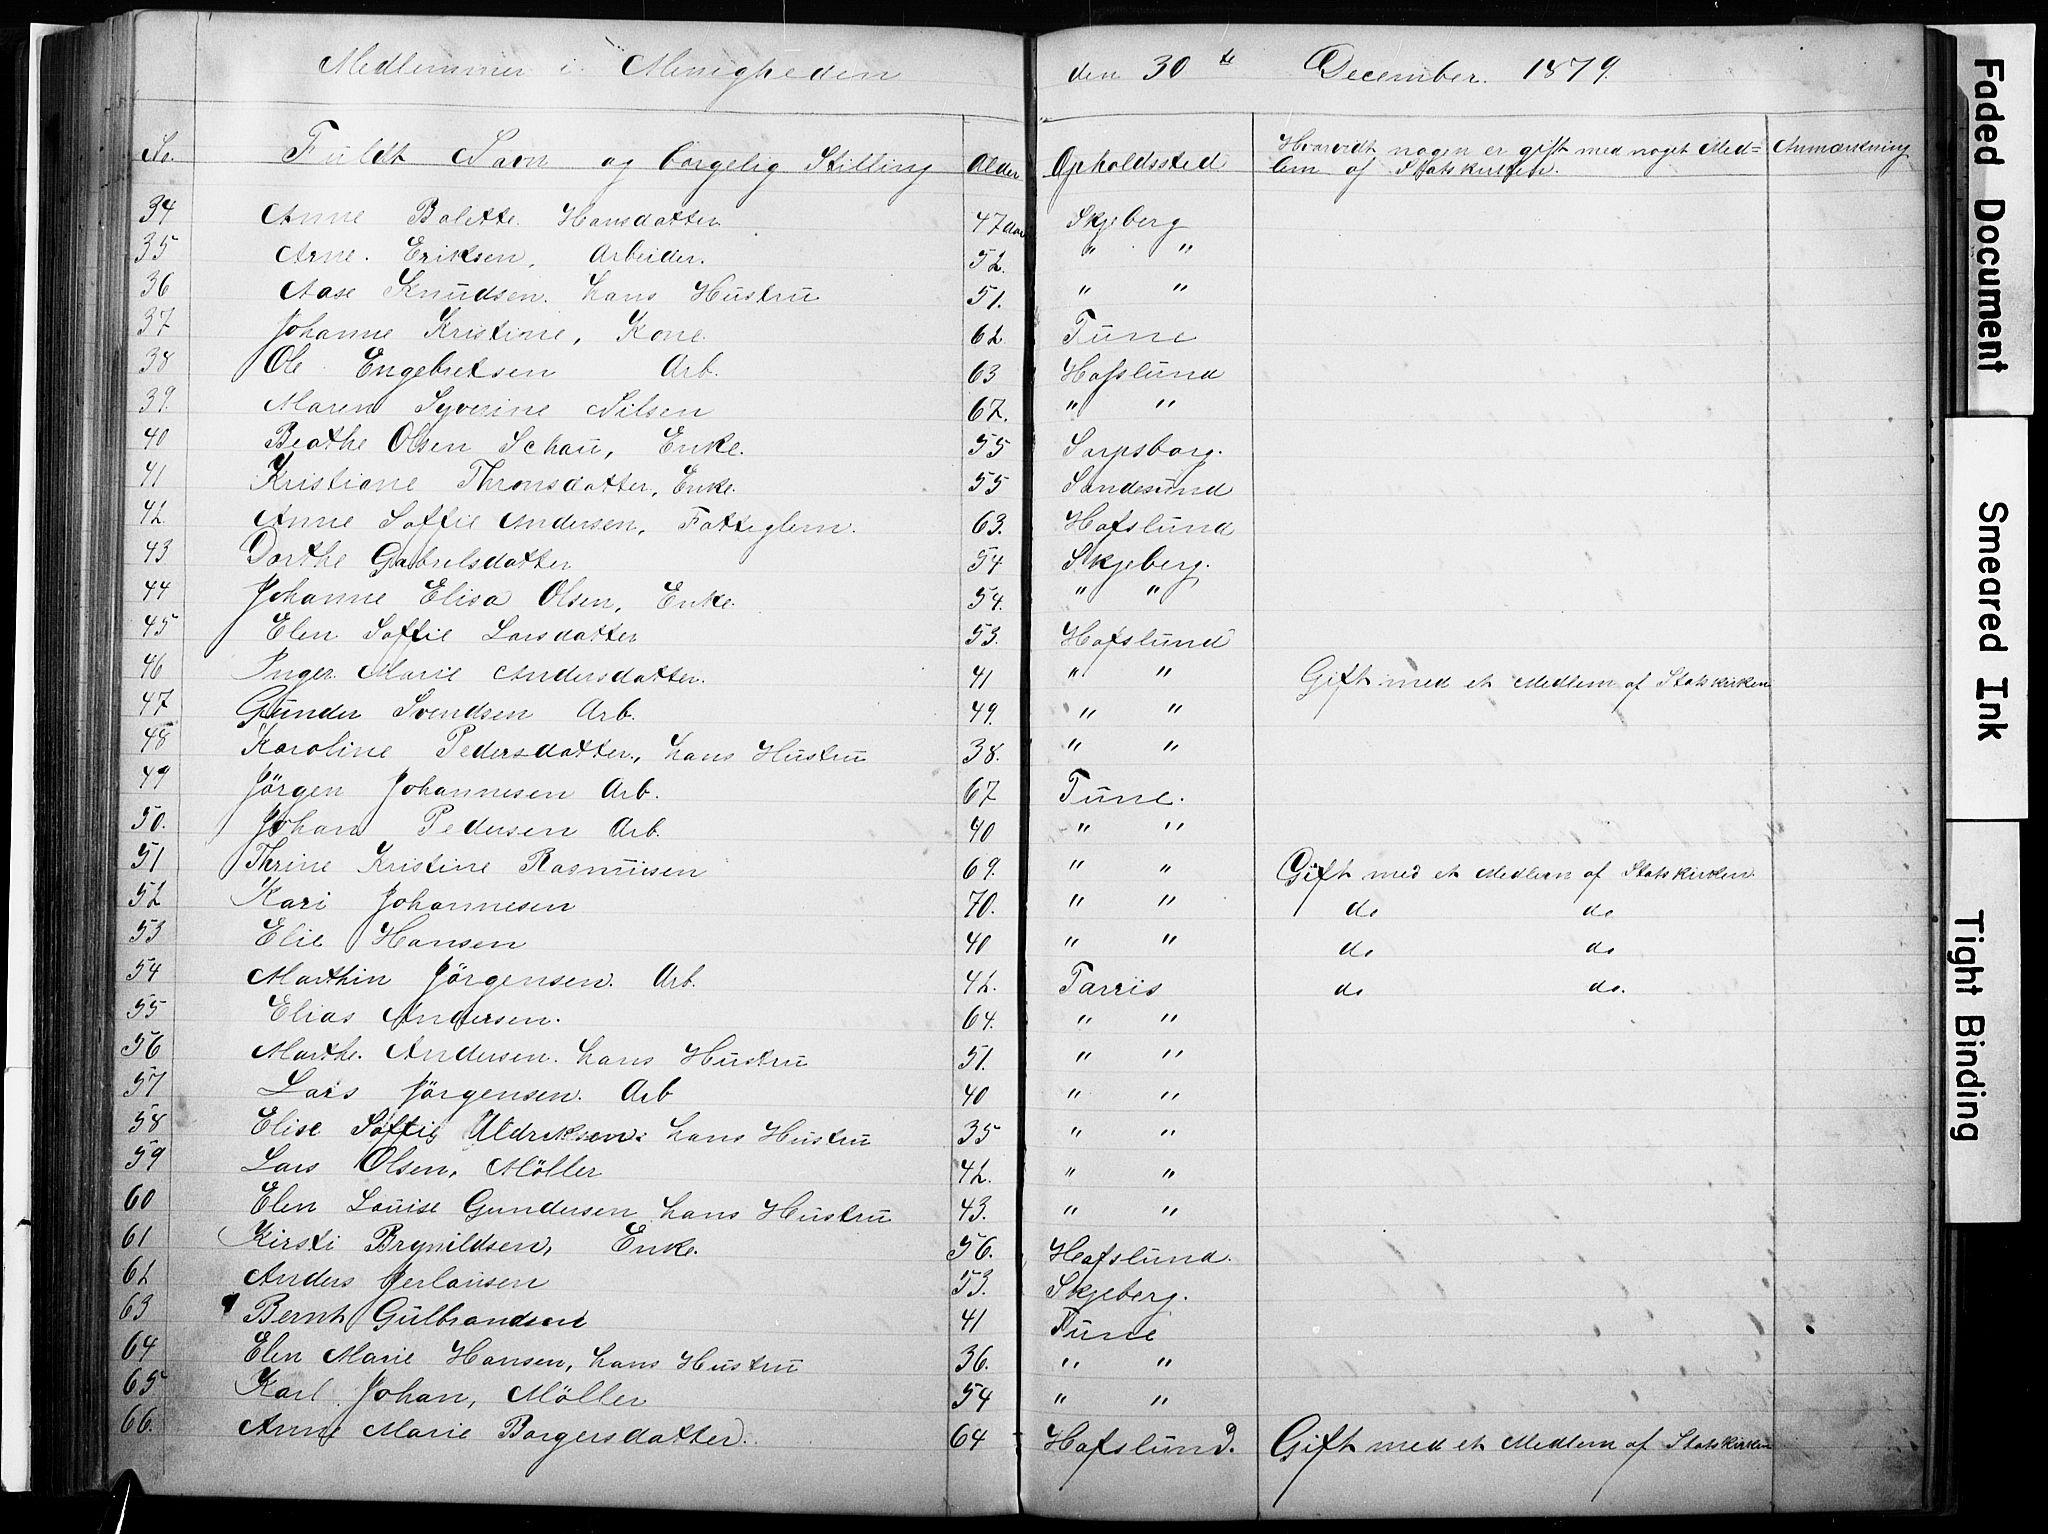 Medlemmer i Menigheden den 30te December 1879.
No. Fuldt Navn og borgelig Stilling Alder Opholdssted Hvorvidt nogen er gift med noget Med= Anmærkning
lem af Statskirken.
34 Anne Bolette Hansdatter 47 aar Skjeberg
35 Arne Eriksen, Arbeider. 52. " "
36 Aase Knudsen. hans Hustru 51. " "
37 Johanne Kristine, Kone 62 Tune
38 Ole Engebretsen Arb. 63 Hafslund
39. Maren Syverine Nilsen 67. " "
40 Beathe Olsen Schau, Enke. 55 Sarpsborg.
41 Kristiane Thronsdatter, Enke. 55 Sandesund
42. Anne Soffie Andersen, Fatteglem. 63. Hafslund
43 Dorthe Gabrielsdatter 54 Skjeberg.
44 Johanne Elisa Olsen, Enke. 54. " "
45 Elen Soffie Larsdatter 53. Hafslund
46 Inger Marie Andersdatter. 41 " " Gift med et Medlem af Statskirken
47 Gunder Svendsen Arb. 49. " "
48 Karoline Pedersdatter, hans Hustru 38. " "
49 Jörgen Johannesen Arb. 67 Tune.
50. Johan Pedersen Arb. 40 " "
51 Thrine Kristine Rasmusen 69. " " Gift med et Medlem af Statskirken
52 Kari Johannesen 70. " " do do
53 Elie Hansen 40 " " do do
54 Marthin Jörgensen. Arb. 42. Tarris do do.
55 Elias Andersen. 64. " "
56 Marthe. Andersen. hans Hustru 51. " "
57 Lars Jörgensen. Arb 40 " "
58 Elise Soffie Uldriksen. hans Hustru 35 " "
59 Lars Olsen, Möller 42. " "
60 Elen Louise Gundersen hans Hustru 43. " "
61 Kirsti Brynildsen, Enke. 56. Hafslund.
62 Anders 53. Skjeberg.
63 Bernt Gulbrandsen 41 Tune
64 Elen Marie Hansen, hans Hustru 36. " "
65 Karl Johan, Möller 54 " "
66. Anne Marie Borgersdatter. 64 Hafslund. Gift med et Medlem af Statskirken
Faded Document
Smeared Ink
Tight Binding